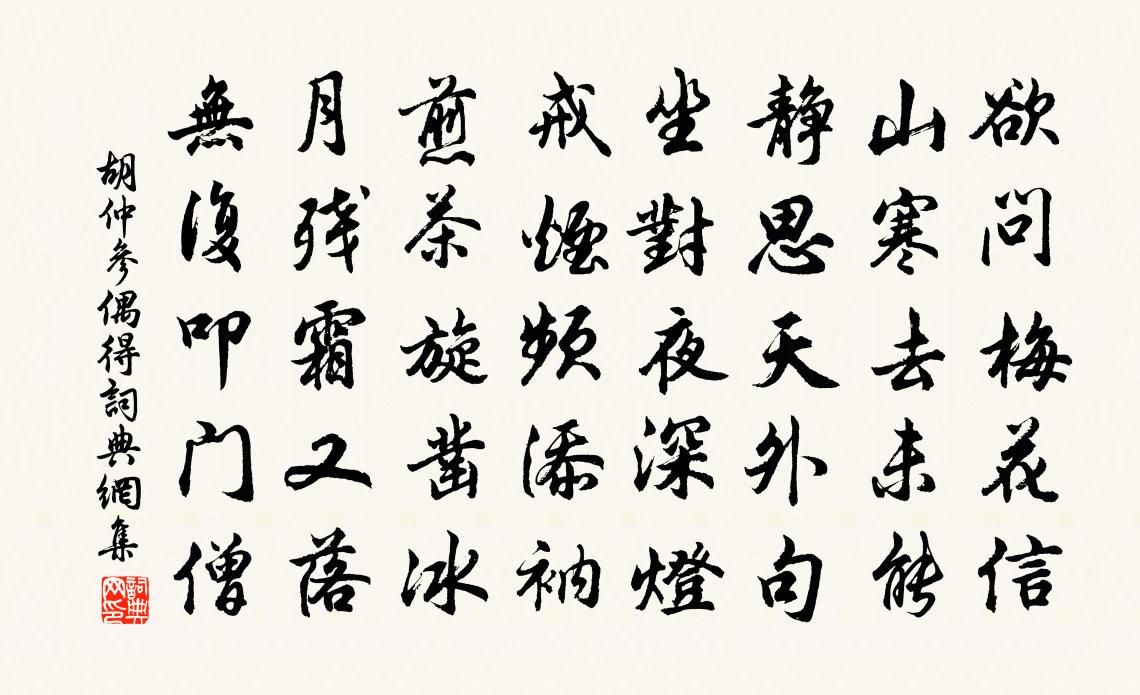 欲问梅花信
山寒去未能
静思天外句
坐對夜深燈
戒煙頻添衲
煎茶旋凿冰
月残霜又落
無復叩门僧
胡仲參偶得詞典網集
詞典網印